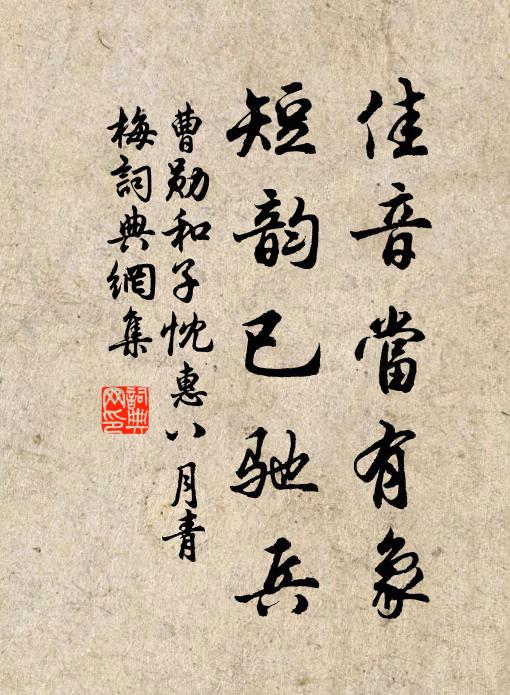 佳音當有象
短韵已馳兵
曹勋和子忱惠八月青
梅詞典網集
詞典
网印